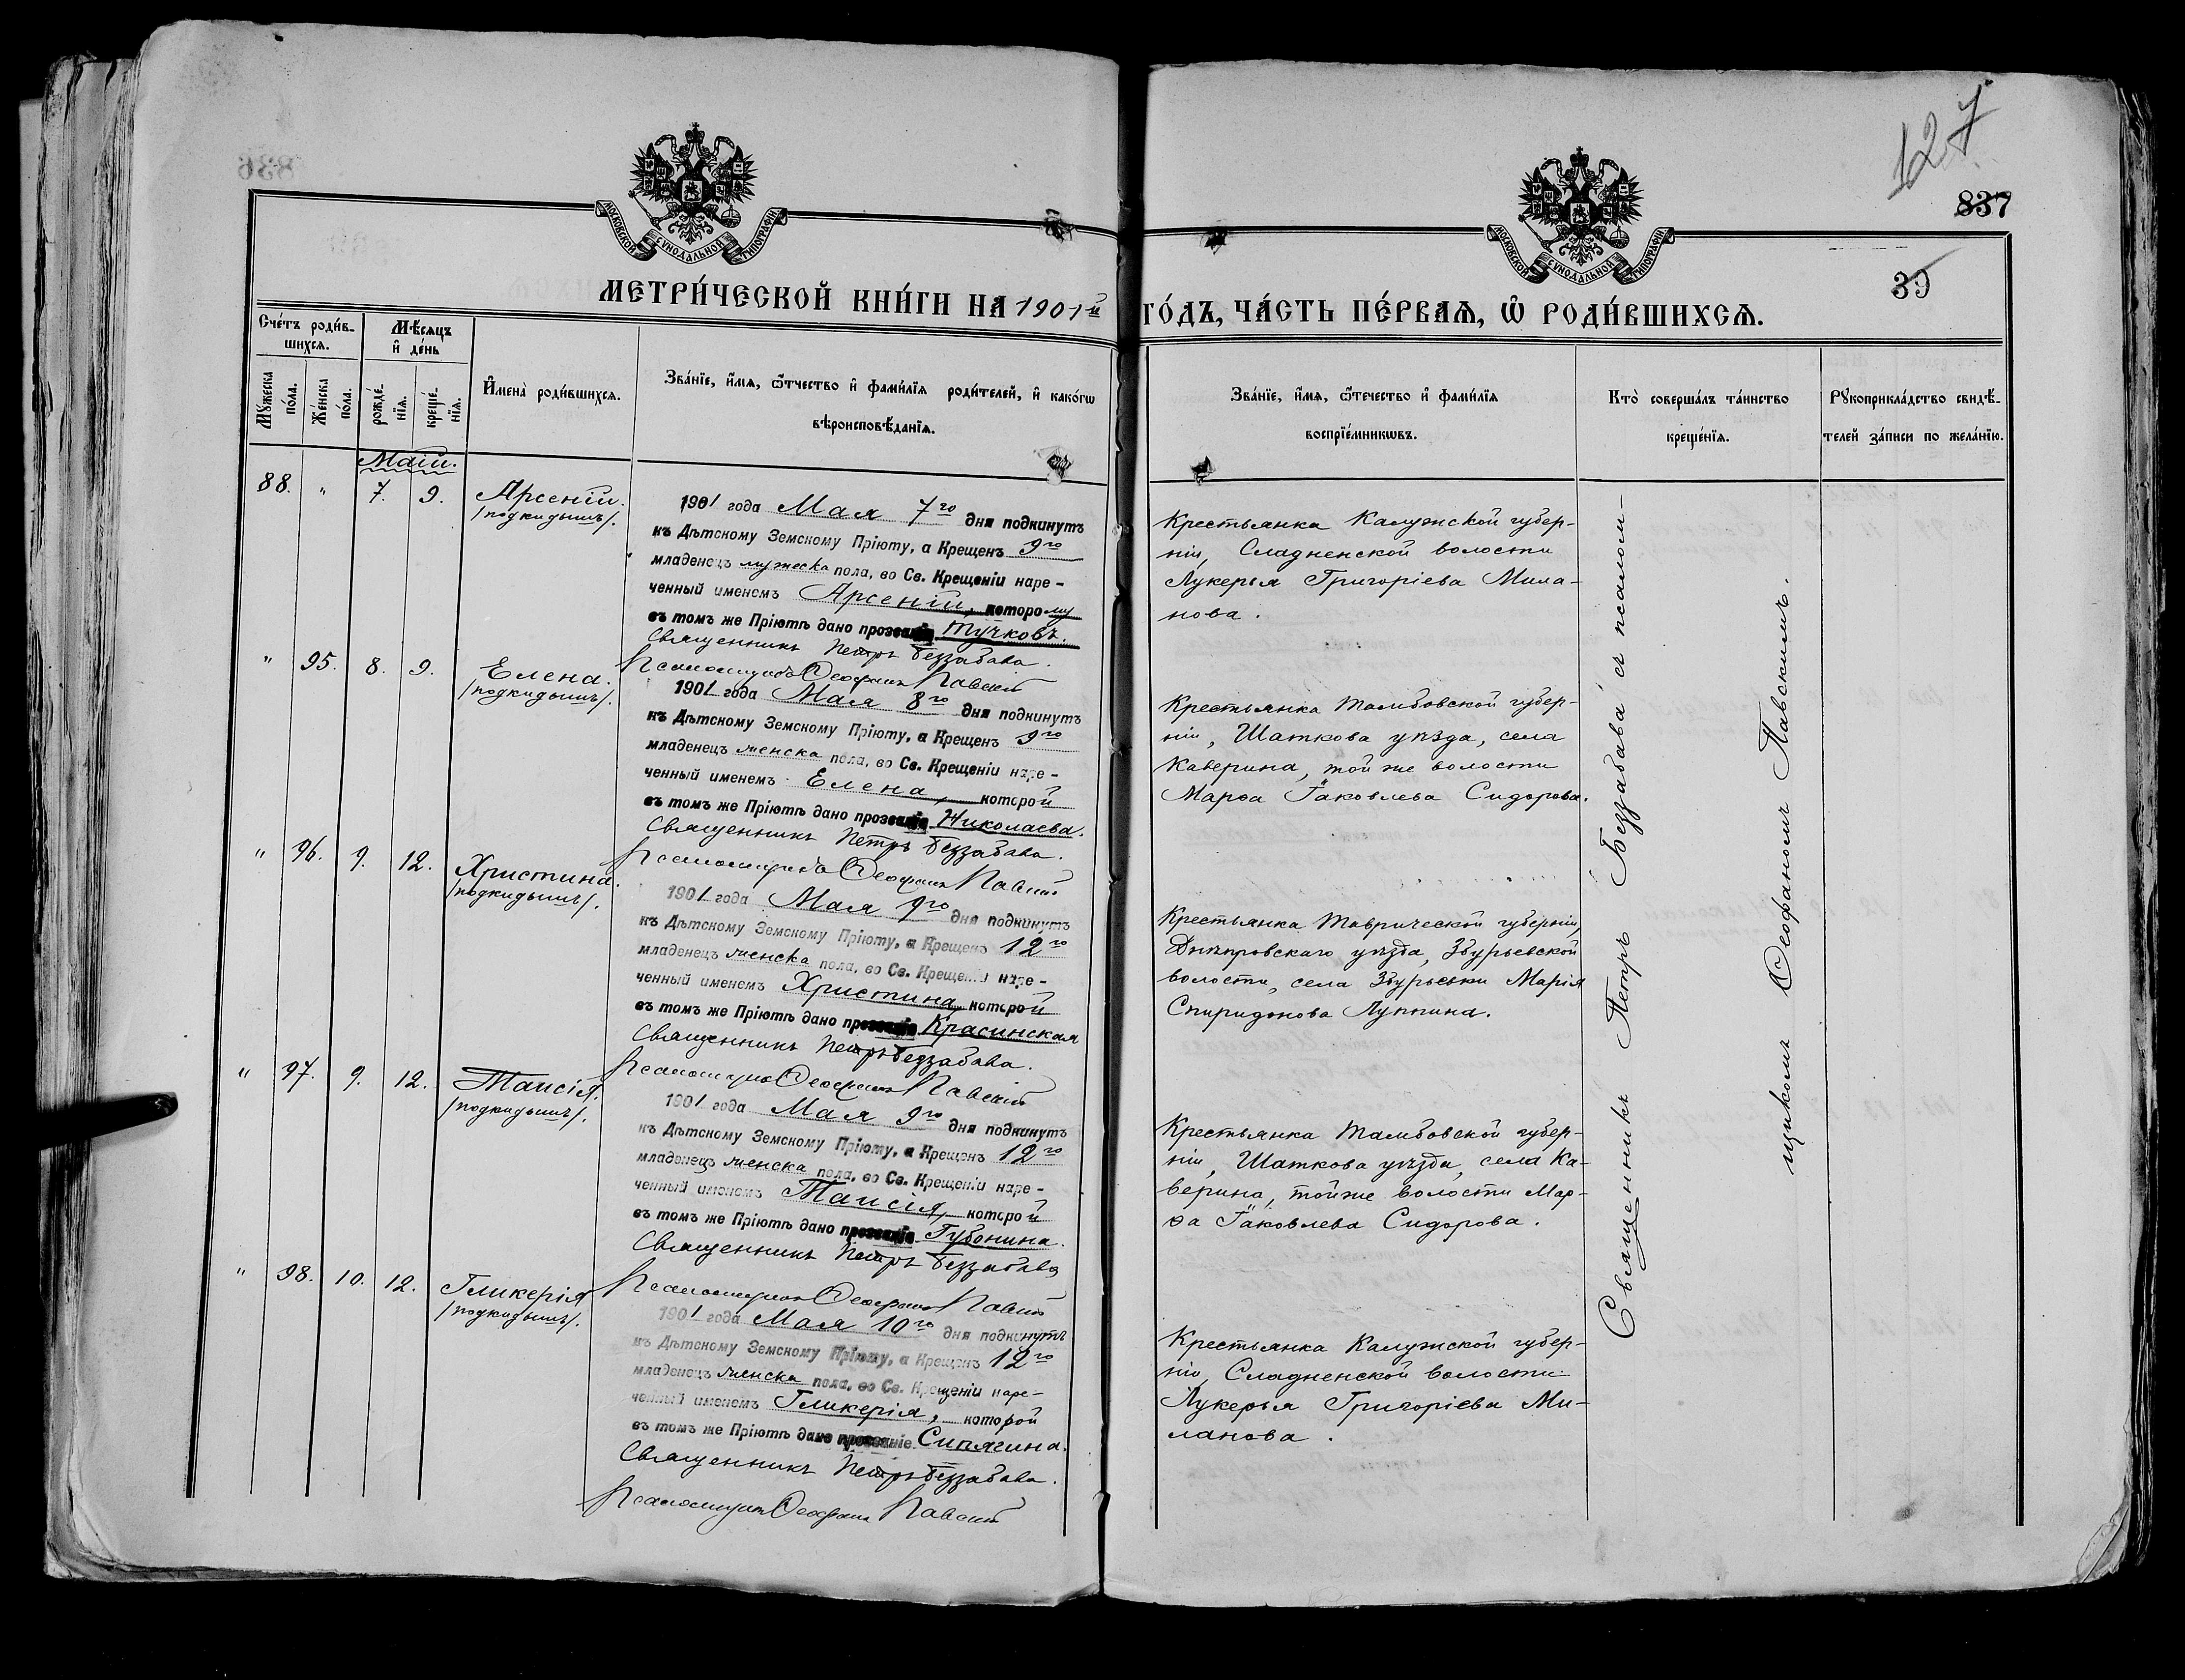 127
837
39
МОСКОВСКОЙ СѴНОДАЛЬНОЙ ТИПОГРАФІИ
МОСКОВСКОЙ СѴНОДАЛЬНОЙ ТИПОГРАФІИ
МЕТРИ́ЧЕСКОЙ КНИ́ГИ НА 1901й ГО́ДЪ, ЧА́СТЬ ПЕ́РВАѦ, Ѽ РОДИ́ВШИХСѦ.
Сче́тъ роди́в-
шихсѧ.
Мѣ́сѧцъ
и҆ де́нь
Мꙋ́жеска
по́ла.
Же́нска
по́ла.
рожде́-
нїѧ.
креще́-
нїѧ.
И҆мена̀ роди́вшихсѧ.
Зва́нїе, и҆́мѧ, ѻ҆́тчество и҆ фами́лїѧ роди́телей, и҆ како́гѡ
вѣроисповѣ́данїѧ.
Зва́нїе, и҆́мѧ, ѻ҆те́чество и҆ фами́лїѧ
воспрїе́мникѡвъ.
Кто̀ соверша́лъ та́инство
креще́нїѧ.
Рꙋкоприкла́дство свидѣ́-
телей за́писи по жела́нїю.
Маій.
88. " 7. 9. Арсеній.
/подкидышъ/.
1901 года Мая 7го дня подкинутъ
къ Дѣтскому Земскому Пріюту, а Крещенъ 9го
младенецъ мужеска пола, во Св. Крещеніи наре-
ченный именемъ Арсеній, которому
въ томъ же Пріютѣ дано прозваніе Тучковъ.
Священникъ Петръ Беззабава.
Псаломщикъ Ѳеофанъ Павскій
Крестьянка Калужской губер-
ніи, Сладненской волости
Лукерья Григоріева Мила-
нова.
" 95. 8. 9. Елена.
/подкидышъ/.
1901 года Мая 8го дня подкинутъ
къ Дѣтскому Земскому Пріюту, а Крещенъ 9го
младенецъ женска пола, во Св. Крещеніи наре-
ченный именемъ Елена, которой
въ томъ же Пріютѣ дано прозваніе Николаева.
Священникъ Петръ Беззабава.
Псаломщикъ Ѳеофанъ Павскій
Крестьянка Тамбовской губер-
ніи, Шаткова уѣзда, села
Каверина, той же волости
Марѳа Іаковлева Сидорова.
" 96. 9. 12. Христина.
/подкидышъ/.
1901 года Мая 9го дня подкинутъ
къ Дѣтскому Земскому Пріюту, а Крещенъ 12го
младенецъ женска пола, во Св. Крещеніи наре-
ченный именемъ Христина, которой
въ томъ же Пріютѣ дано прозваніе Красинская
Священникъ Петръ Беззабава.
Псаломщикъ Ѳеофанъ Павскій
Крестьянка Таврической губерніи,
Днѣпровскаго уѣзда, Збурьевской
волости, села Збурьевки Марія
Спиридонова Луппина.
" 97. 9. 12. Таисія.
/подкидышъ/.
1901 года Мая 9го дня подкинутъ
къ Дѣтскому Земскому Пріюту, а Крещенъ 12го
младенецъ женска пола, во Св. Крещеніи наре-
ченный именемъ Таисія, которой
въ томъ же Пріютѣ дано прозваніе Губонина.
Священникъ Петръ Беззабава
Псаломщикъ Ѳеофанъ Павскій
Крестьянка Тамбовской губер-
ніи, Шаткова уѣзда, села Ка-
верина, той же волости Мар-
ѳа Іаковлева Сидорова.
" 98. 10. 12. Гликерія
/подкидышъ/.
1901 года Мая 10го дня подкинутъ
къ Дѣтскому Земскому Пріюту, а Крещенъ 12го
младенецъ женска пола, во Св. Крещеніи наре-
ченный именемъ Гликерія, которой
въ томъ же Пріютѣ дано прозваніе Сипягина.
Священникъ Петръ Беззабава.
Псаломщикъ Ѳеофанъ Павскій
Крестьянка Калужской губер-
ніи, Сладненской волости
Лукерья Григоріева Ми-
ланова.
Священникъ Петръ Беззабава съ псалом-
щикомъ Ѳеофаномъ Павскимъ.